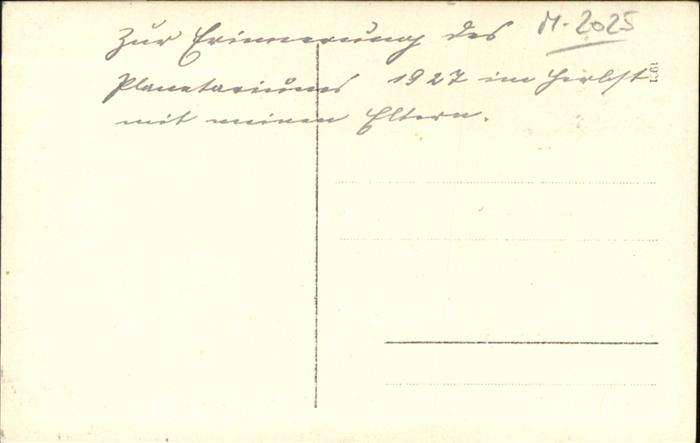 M-2025
Zur Erinnerung des
Planetariums 1927 im Herbst
mit meinen Eltern.